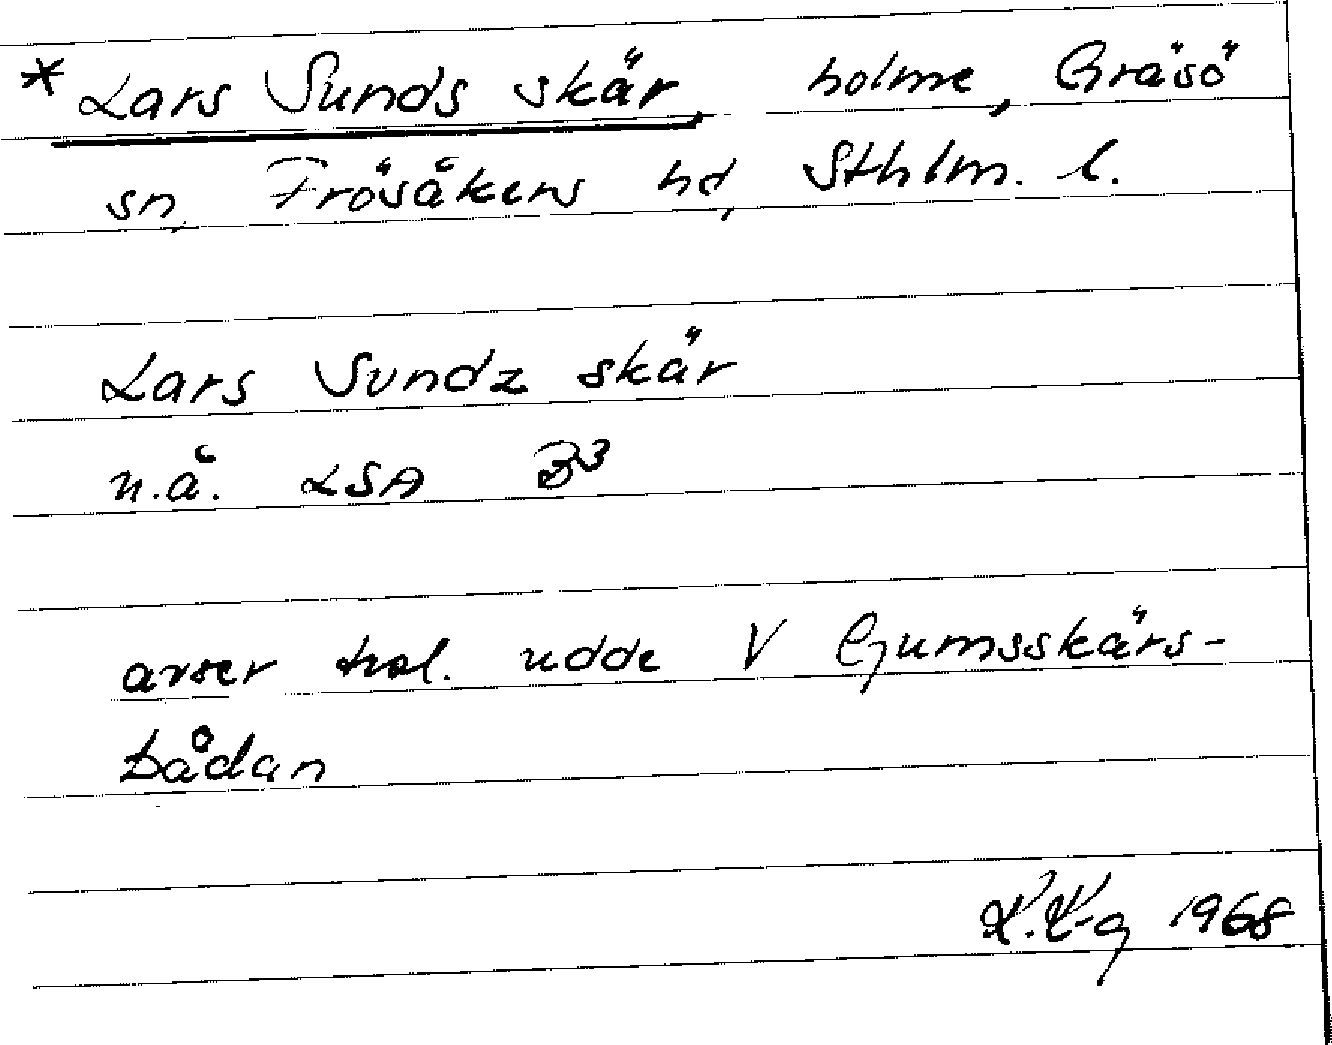 *Lars Sunds skär, holme, Gräsö
sn, Frösåkers hd, Sthlm. l.
Lars Sundz skär
n.ä. LSA B3
avser trol. udde V Gumsskärs-
bådan
K.K-g 1968